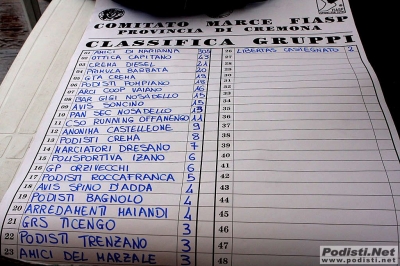 COMITATO MARCE FIASP
PROVINCIA DI CREMONA
CLASSIFICA GRUPPI
01 AMICI DI MARIANNA
02 OTTICA CAPITANO 23
03 CREMA DIESEL 21
04 PAHULA BARBATA 20
05 GTA CREMA 19
06 PODISTI POMPIANO 18
07 ARCI COOP VAIANO 16
08 BAR GIGI NOSADELLO 15
09 AVIS SONCINO 15
10 PAN SEC NOSADELLO 13
11 CSO RUNNING OFFANENGO 11
12 ANONIMA CASTELLEONE 9
13 PODISTI CREMA 8
14 MARCIATORI DRESANO 7
15 POLISPORTIVA IZANO 6
16 GP ORZIVECCHI 6
17 PODISTI ROCCAFRANCA 5
18 AVIS SPINO D'ADDA 4
19 PODISTI BAGNOLO 4
20 ARREDAMENTI MAIANDI 4
21 GRS TICENGO 3
22 PODISTI TRENZANO 3
23 AMICI DEL MARZALE 3
26 LIBERTAS CASTEGNATO 2
39
40
41
42
43
44
45
46
47
48
Podisti.Net
www.podisti.net